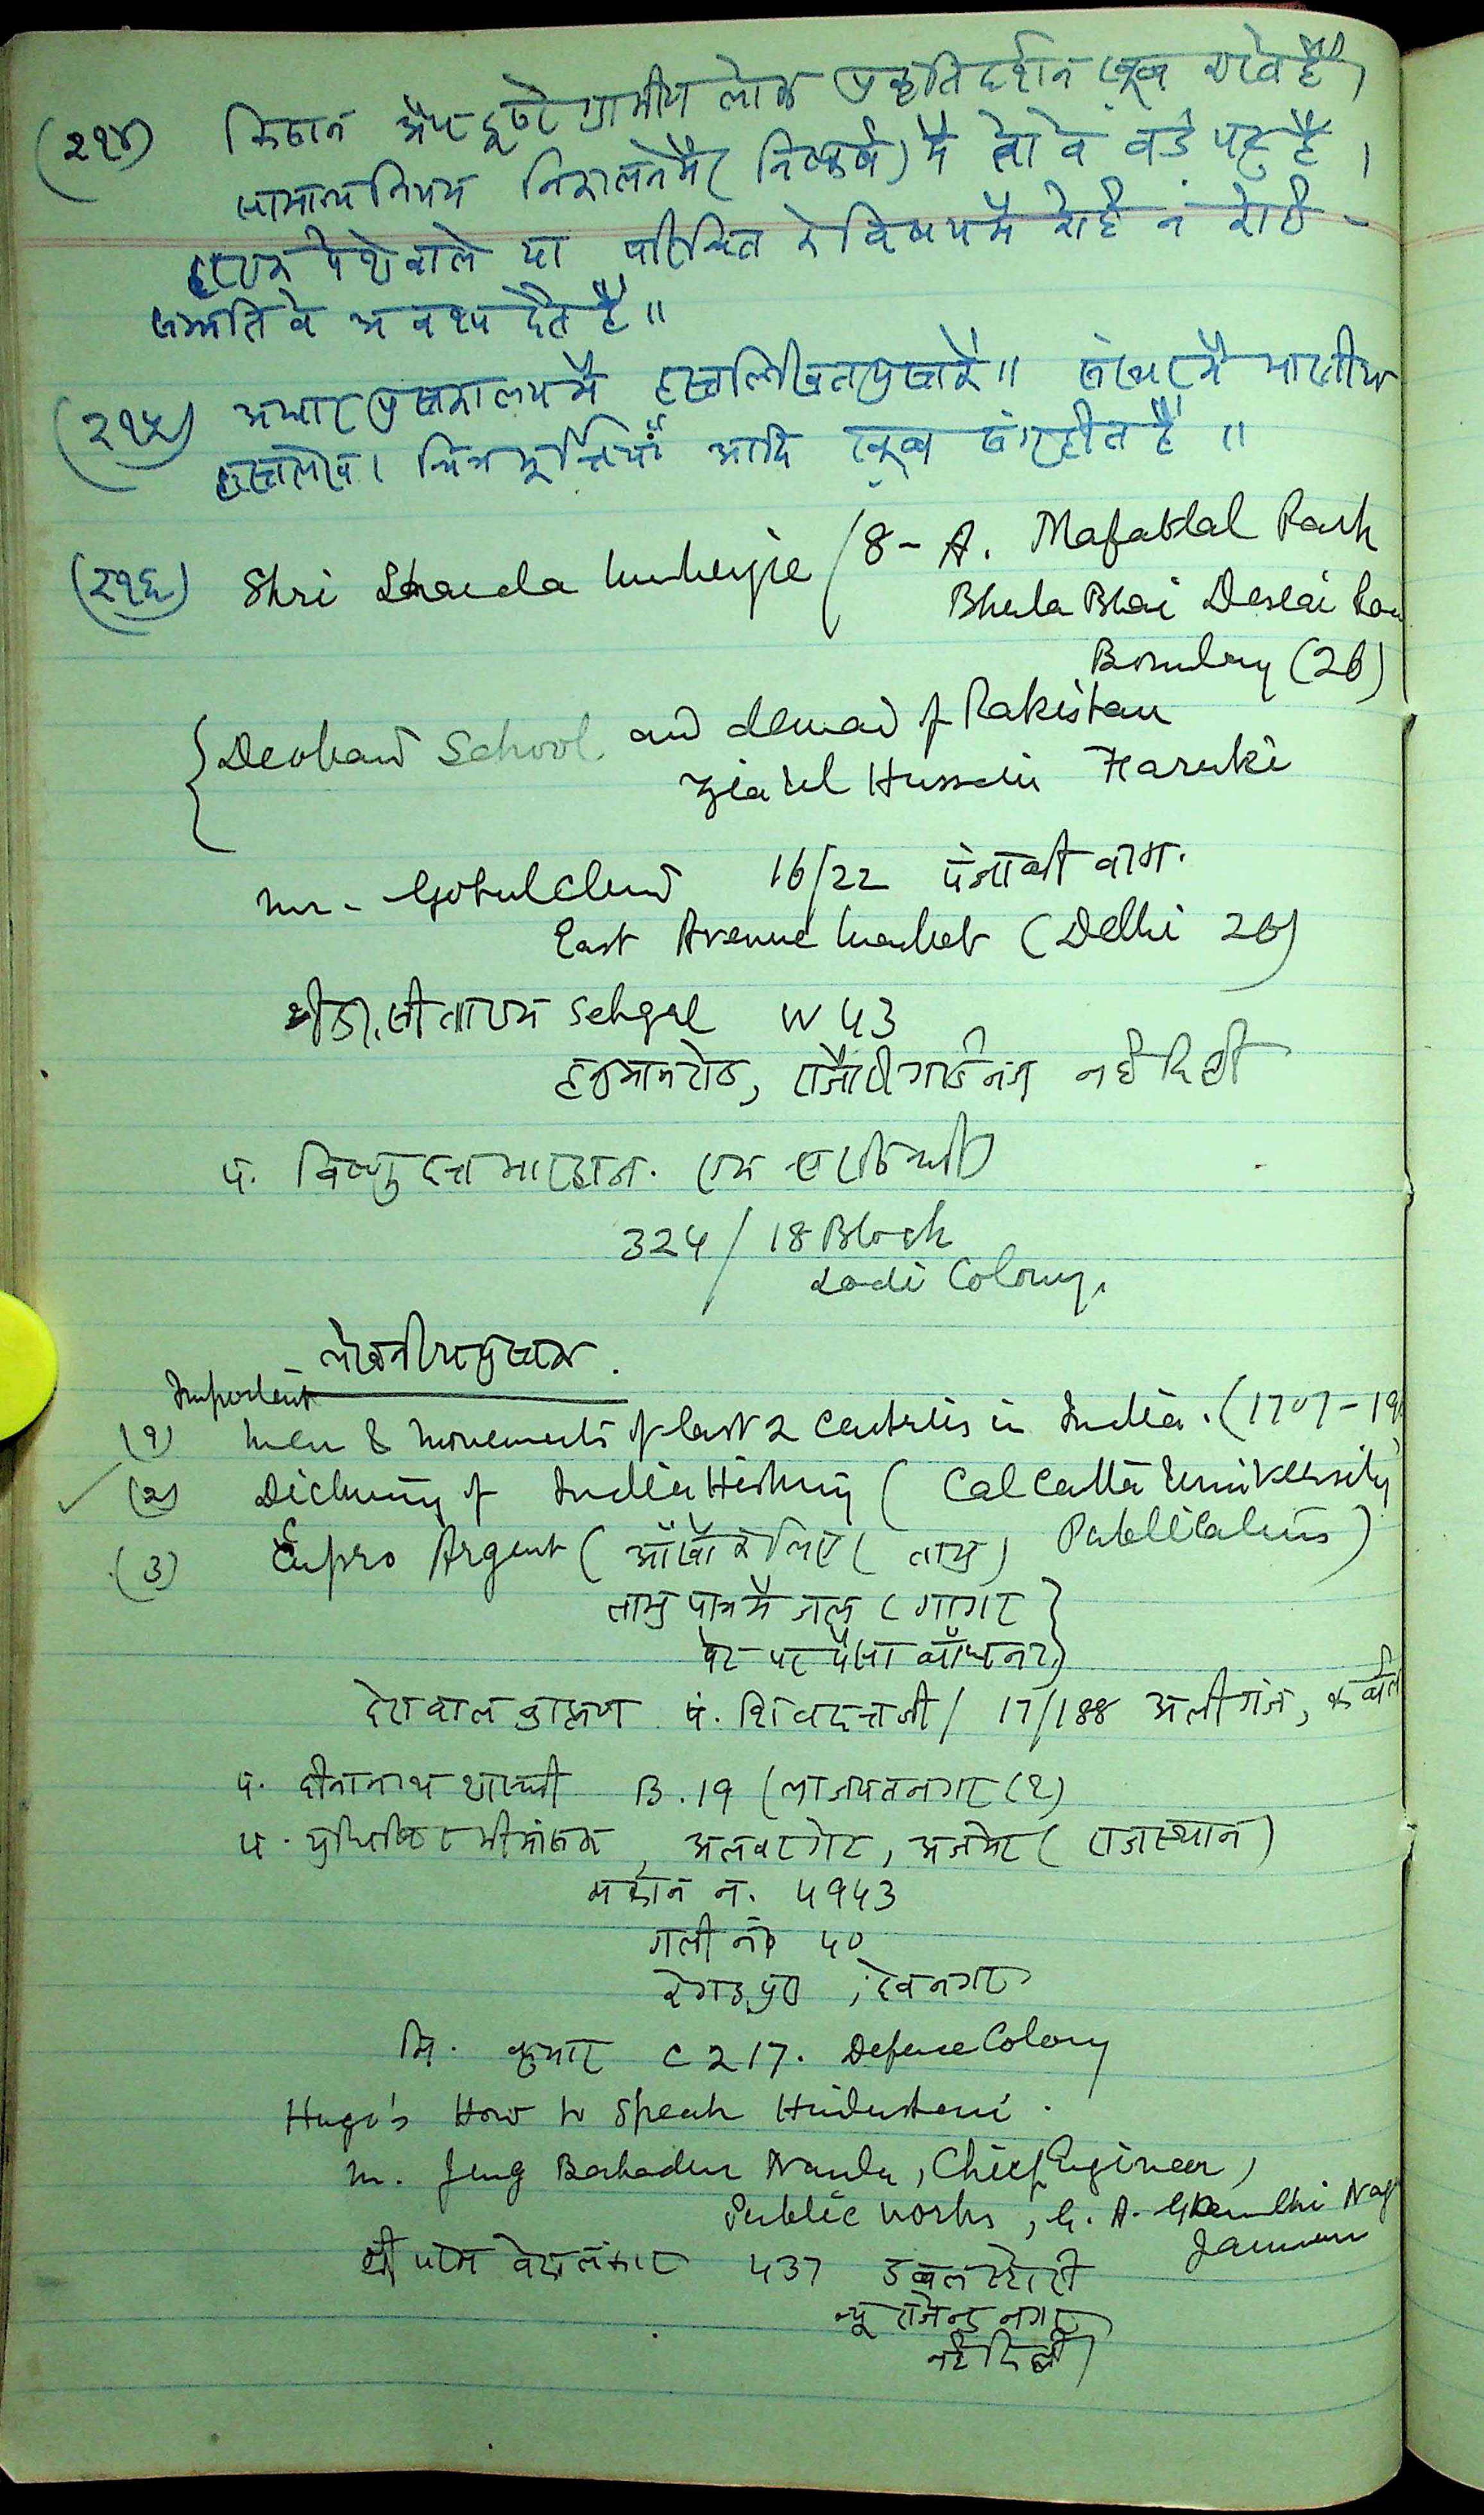 (२१४) किसान और दूसरे ग्रामीण लोक प्रकृति दर्शन खूब करते हैं,
सामान्य नियम निकालने में (निष्कर्ष) में तो वे बड़े पटु हैं।
हरएक पेशेवाले या परिचित के विषय में कोई न कोई
सम्मति वे अवश्य देते हैं॥
(२१५) पुस्तकालय में हस्तलिखित पुस्तकें॥ में भारतीय
हस्तलेख। चित्र मूर्त्तियाँ आदि खूब संगृहीत हैं॥
(२१६) Shri Sharda Mukerjie / 8-A. Mafatlal Park
Bhula Bhai Desai Road
Bombay (26)
{ Deoband School and demand of Pakistan
Zia Ul Hussain Faruki
Mr. Gokulchand 16/22 पंजाबी बाग.
East Avenue Market (Delhi 26)
श्री डा. सीताराम Sehgal W 43
रोड, राजौरी गार्डनज नई दिल्ली
पं. विष्णुदत्त
324 / 18 Block
Lodi Colony.
पुस्तक.
Important
(१) Men & Movements of last 2 centuries in India. (1707-19
(२) Dictionary of Indian History (Calcutta University
Publications)
(३) Cupro Argent (आँखों के लिए (ताम्र)
ताम्र पात्र में जल (गागर }
पेट पर पैसा बाँधना }
ब्राह्मण पं. शिवदत्तजी / 17/188 अलीगंज,
पं. दीनानाथ शास्त्री B.19 (लाजपतनगर (१)
पं. युधिष्ठिर मीमांसक, अलवरगेट, अजमेर (राजस्थान)
मकान न. ५९४३
गली नं ५०
रेगड़पुरा, देवनगर
मि. कुमार C 217. Defence Colony
Hugo's How to Speak Hindustani.
M. Jung Bahadur Nanda, Chief Engineer,
Public Works, G. A. Gandhi Nag
Jammu
श्री वेदालंकार ५३७ डबल स्टोरी
न्यू राजेन्द्र नगर
नई दिल्ली